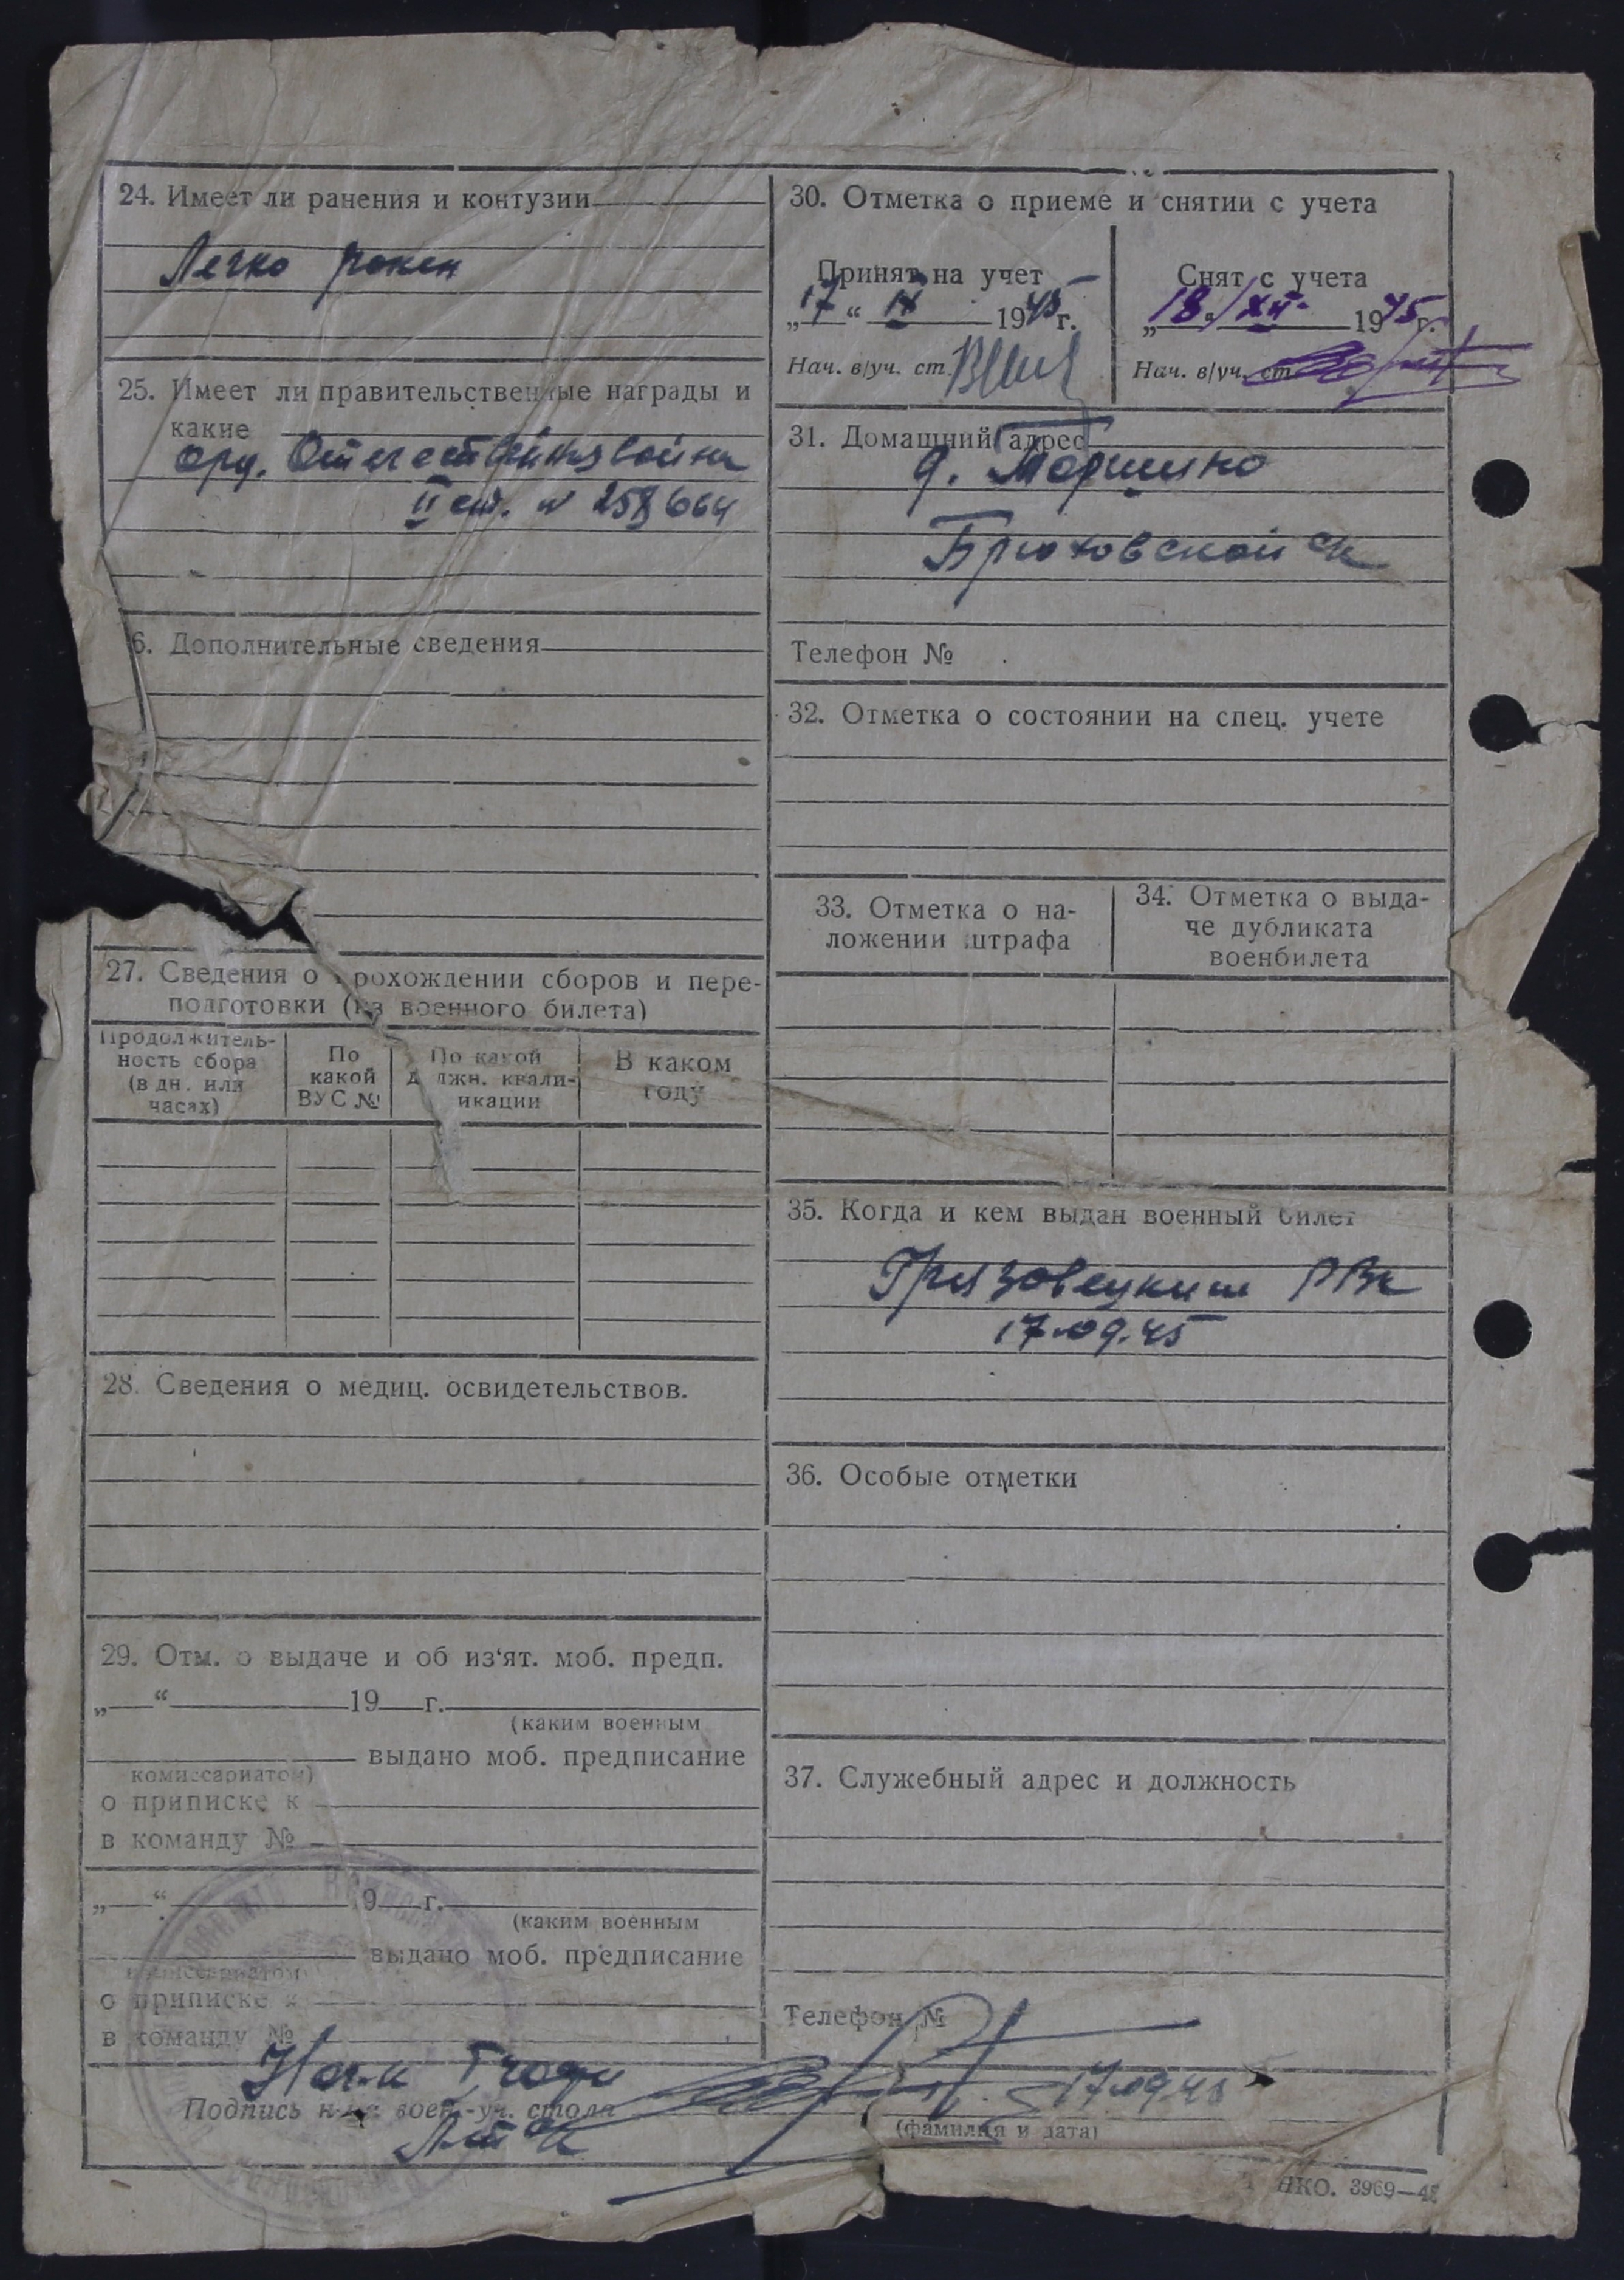 24. Имеет ли ранения и контузии
Легко ранен
25. Имеет ли правительственные награды и
какие
орд. Отечественная война
II ст. № 258664
6. Дополнительные сведения
27. Сведения о прохождении сборов и пере-
подготовки (из военного билета)
Продолжитель-
ность сбора
(в дн. или
часах)
По
какой
ВУС №
По какой
должн. квали-
икации
В каком
году
28. Сведения о медиц. освидетельствов.
29. Отм. о выдаче и об из‘ят. моб. предп.
„ “ 19 г.
(каким военным
выдано моб. предписание
комиссариатом)
о приписке к
в команду №
„ “ 19 г.
(каким военным
выдано моб. предписание
комиссариатом)
о приписке к
в команду №
30. Отметка о приеме и снятии с учета
Принят на учет
„17“ IX 1945 г.
Нач. в/уч. ст.
Снят с учета
„18“ XII 1945 г.
Нач. в/уч. ст.
31. Домашний адрес
д.
Брюховской с/с
Телефон №
32. Отметка о состоянии на спец. учете
33. Отметка о на-
ложении штрафа
34. Отметка о выда-
че дубликата
военбилета
35. Когда и кем выдан военный билет
Грязовецким РВК
17.09.45
36. Особые отметки
37. Служебный адрес и должность
Телефон №
Подпись н-ка воен.-уч. стола
17.09.45
(фамилия и дата)
НКО. 3969—45